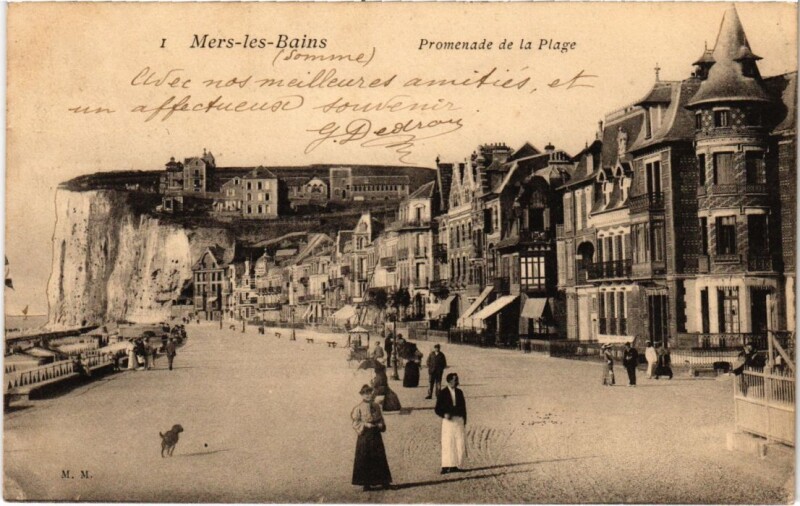 1 Mers-les-Bains Promenade de la Plage
(Somme)
Avec nos meilleures amitiés, et
un affectueux souvenir.
G. Dedrou
M. M.